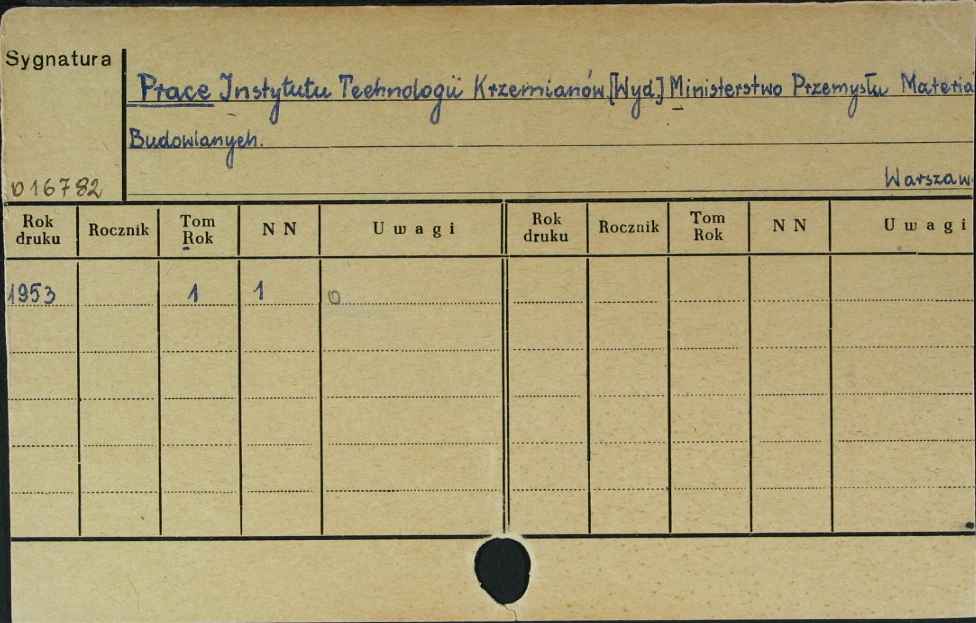 Sygnatura
Prace Instytutu Technologii Krzemianów [Wyd.] Ministerstwo Przemysłu Materia
Budowlanych.
016782
Warszaw
Rok druku Rocznik Tom Rok N N Uwagi Rok druku Rocznik Tom Rok N N Uwagi
1953 1 1 0